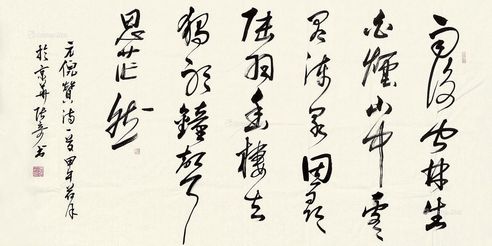 雨後空林生
白煙山中處々
有流泉因尋
陸羽幽棲去
獨聽鐘聲
思茫然
元倪贊诗一首甲午荷月
於京華